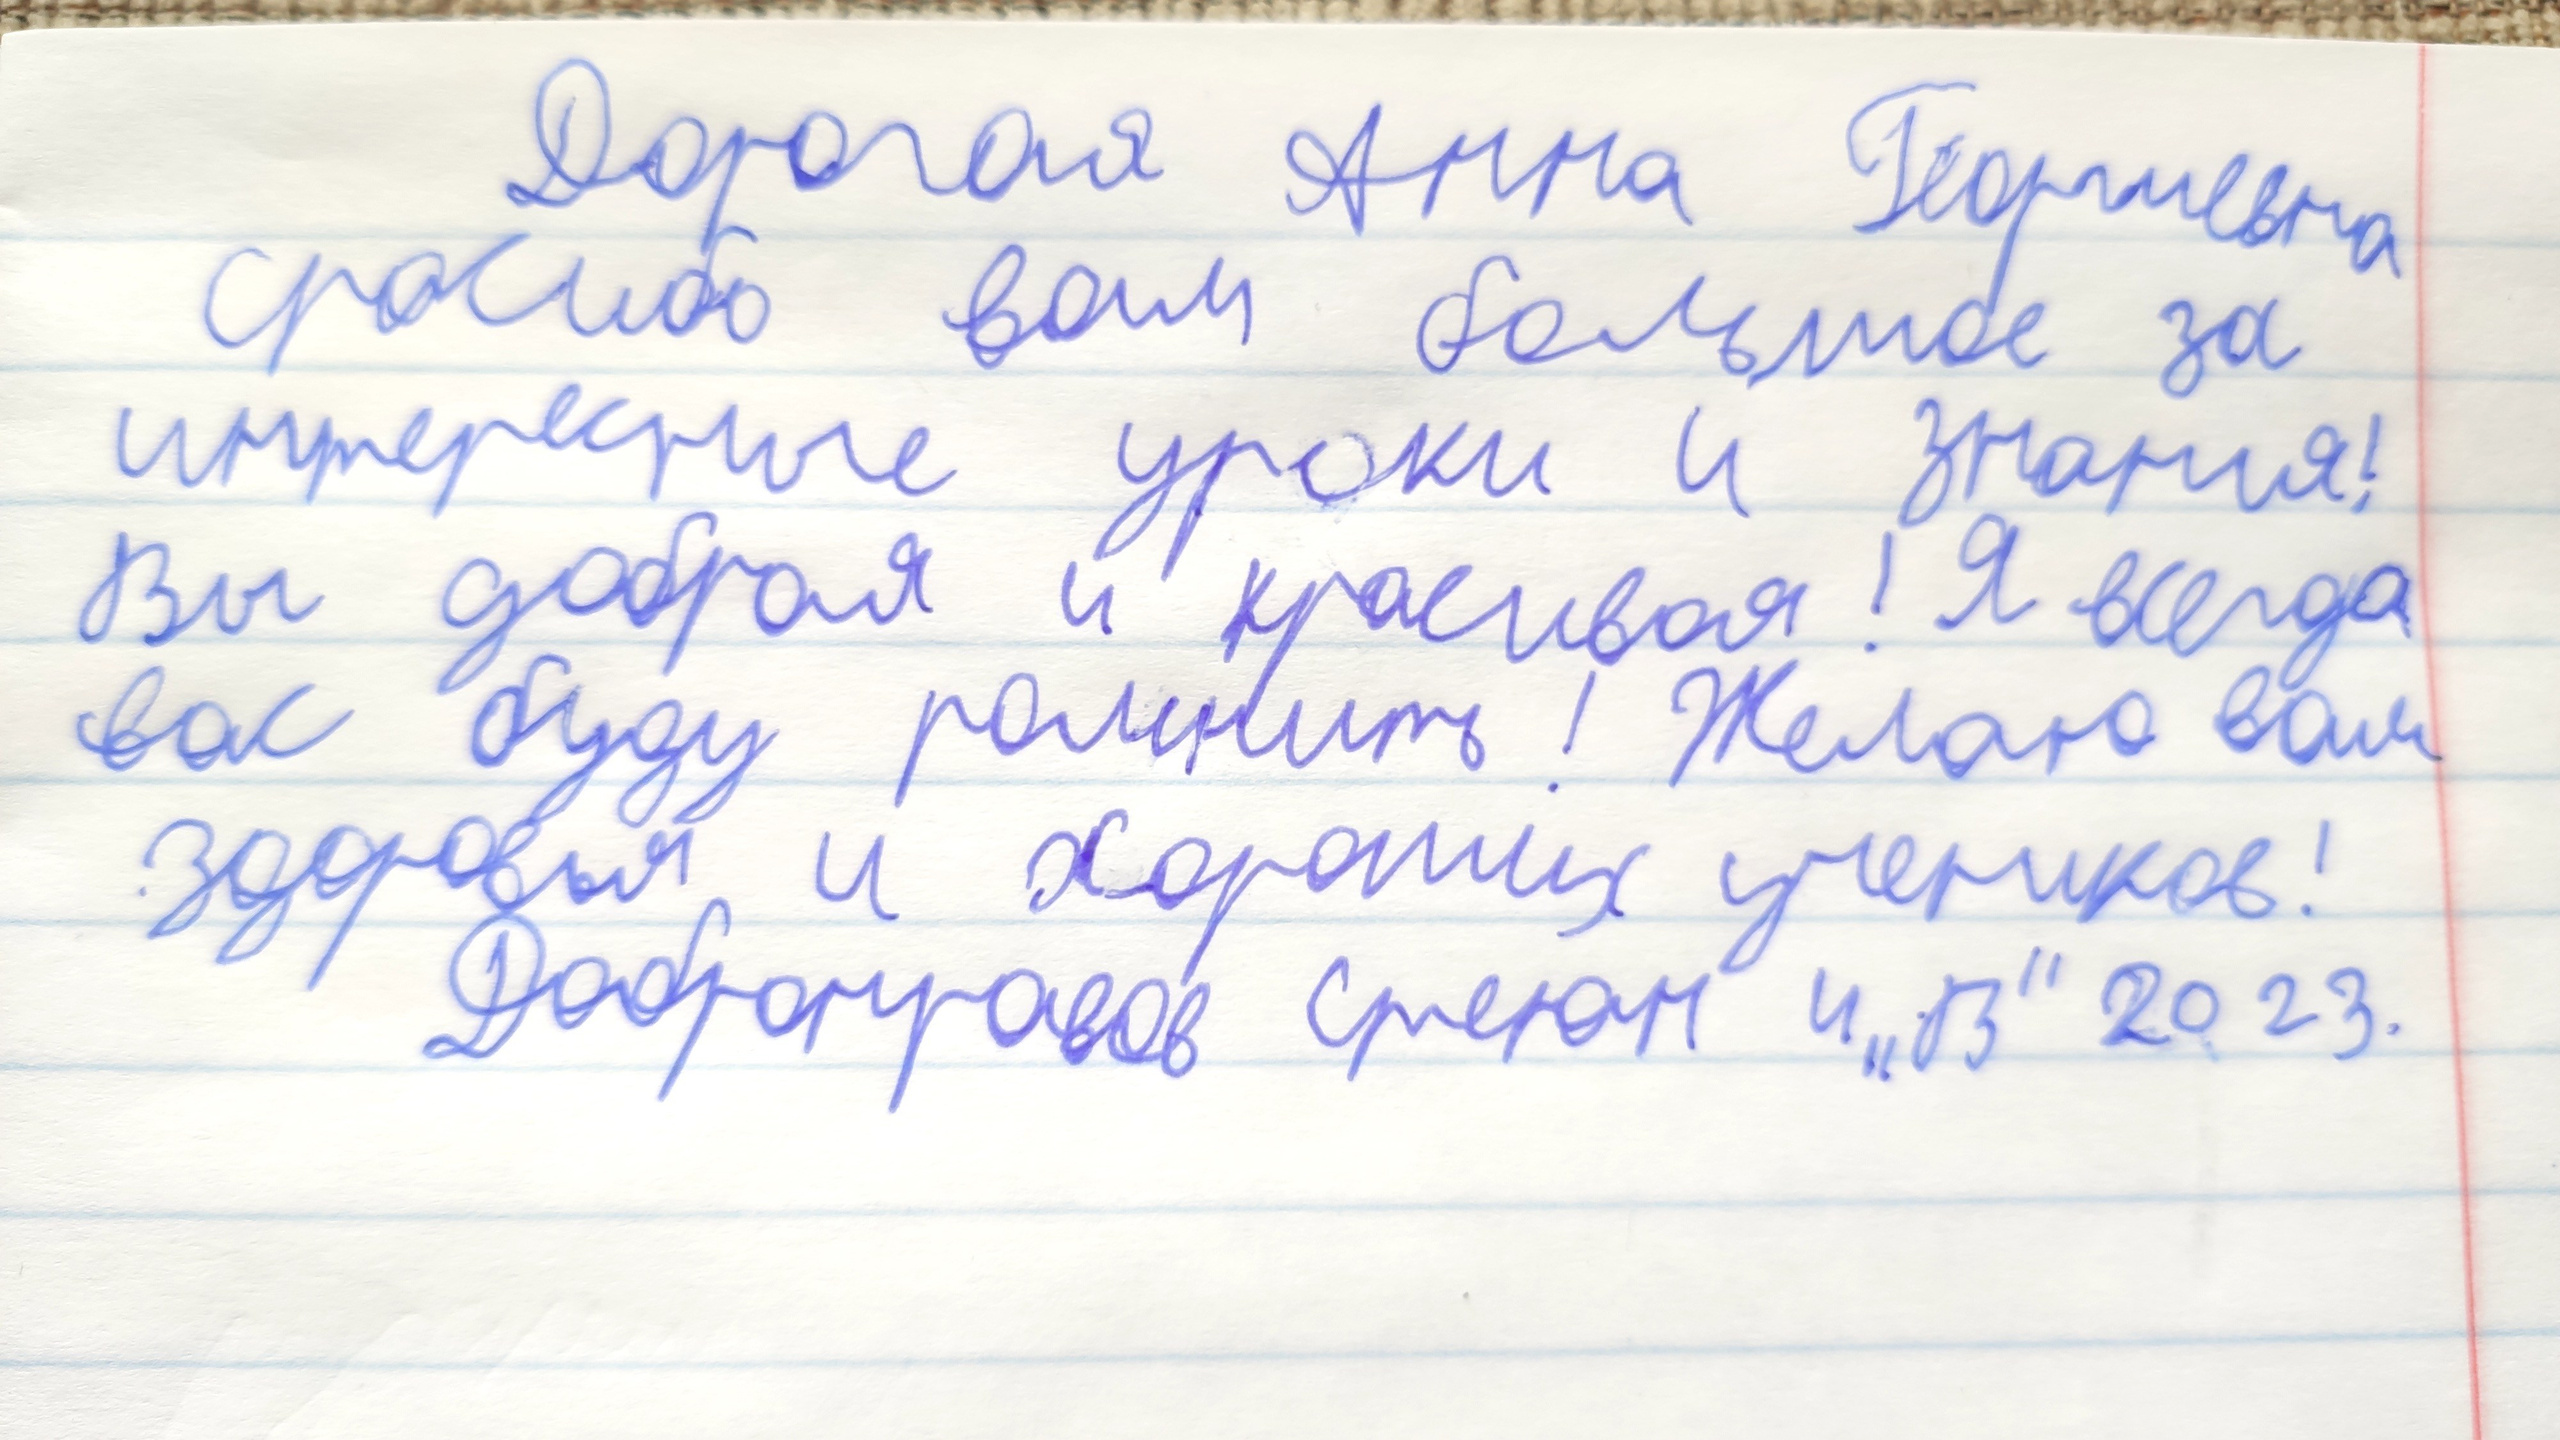 Дорогая Анна Георгиевна
спасибо вам большое за
интересные уроки и знания!
Вы добрая и красивая! Я всегда
вас буду помнить! Желаю вам
здоровья и хороших учеников!
Добронравов Степан 4 „В" 2023.